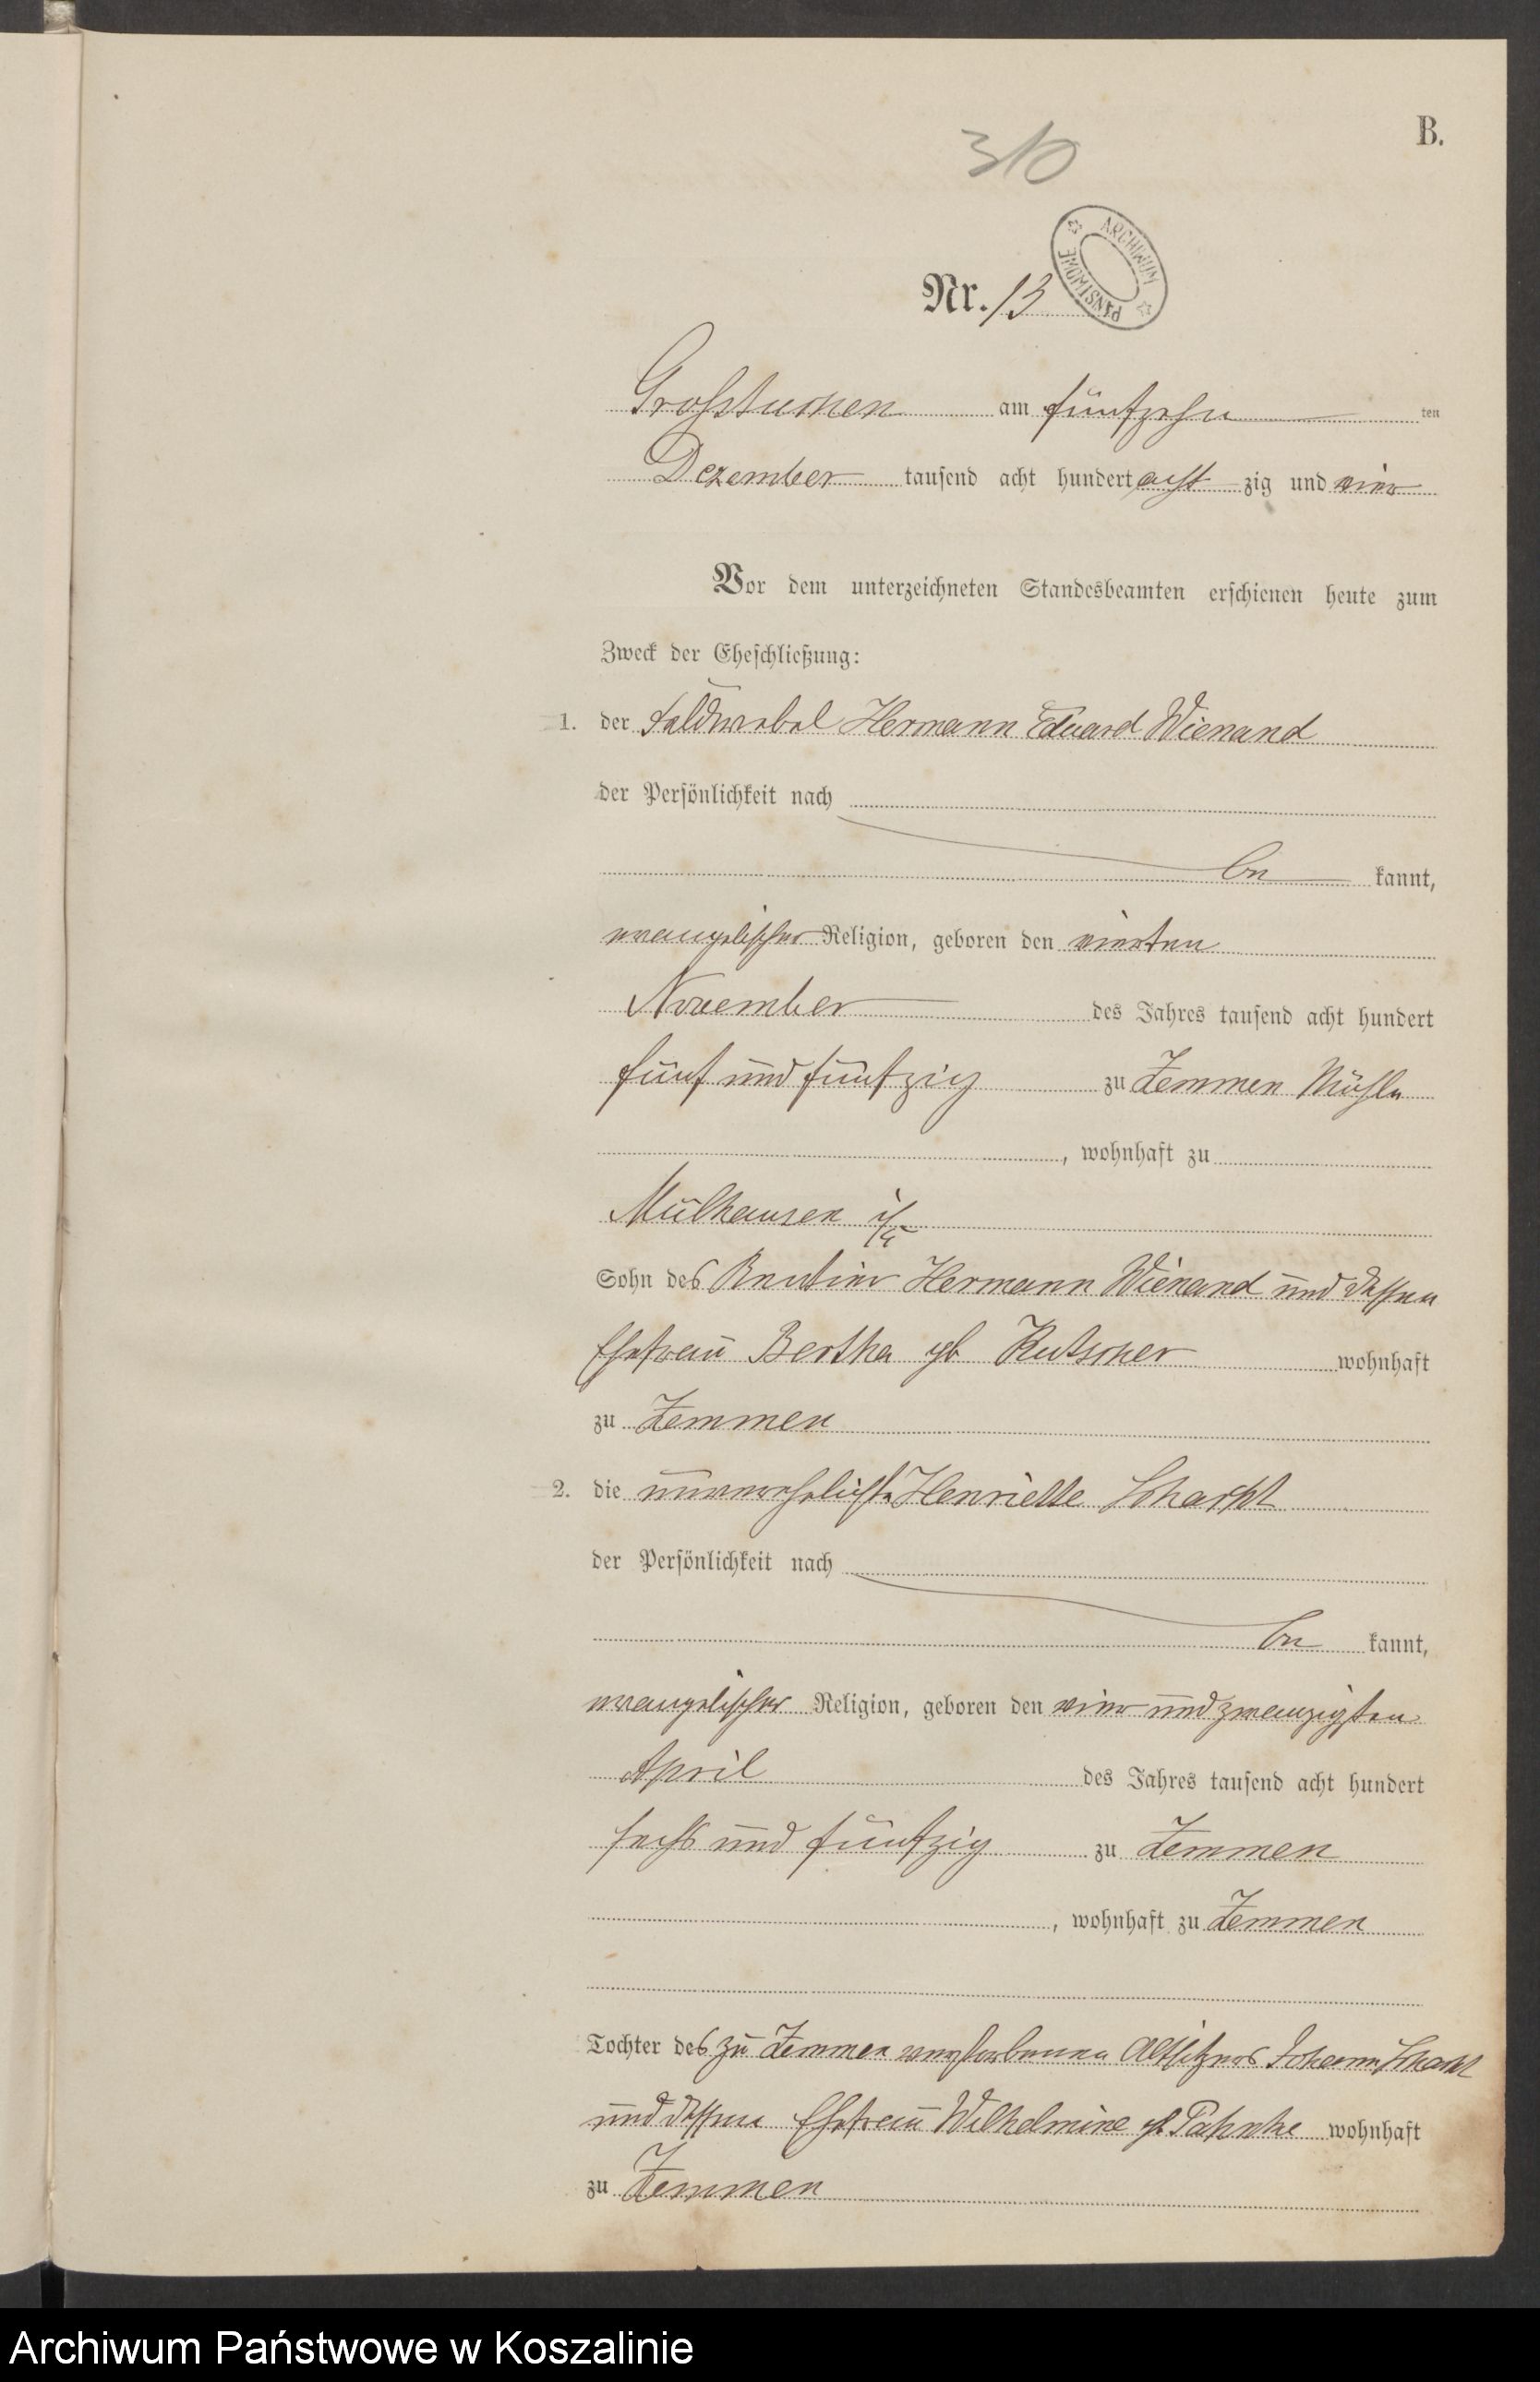 B.
310
ARCHIWUM PAŃSTWOWE
Nr. 13
Großtuchen am fünfzehn ten
Dezember tausend acht hundert acht zig und vier
Vor dem unterzeichneten Standesbeamten erschienen heute zum
Zweck der Eheschließung:
1. der Feldwebel Hermann Eduard Wienand
der Persönlichkeit nach
be kannt,
evangelischer Religion, geboren den vierten
November des Jahres tausend acht hundert
fünf und fünfzig zu Zemmen Mühle
, wohnhaft zu
Mülhausen i/E
Sohn des Rentier Hermann Wienand und dessen
Ehefrau Bertha gb Rutscher wohnhaft
zu Zemmen
2. die unverehelichte Henriette Schacht
der Persönlichkeit nach
be kannt,
evangelischer Religion, geboren den vier und zwanzigsten
April des Jahres tausend acht hundert
sechs und fünfzig zu Zemmen
, wohnhaft zu Zemmen
Tochter des zu Zemmen verstorbenen Altsitzers Johann Schacht
und dessen Ehefrau Wilhelmine gb Pahnke wohnhaft
zu Zemmen
Archiwum Państwowe w Koszalinie